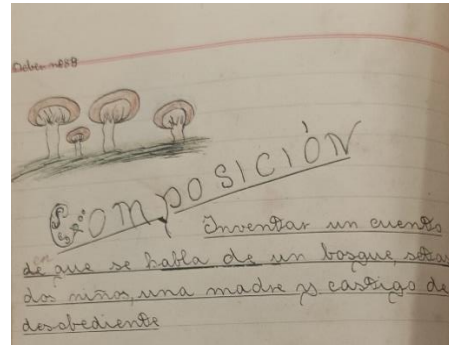 Deber nº 88
COMPOSICIÓN
Inventar un cuento
en que se habla de un bosque, setas
dos niños, una madre y castigo de
desobediente